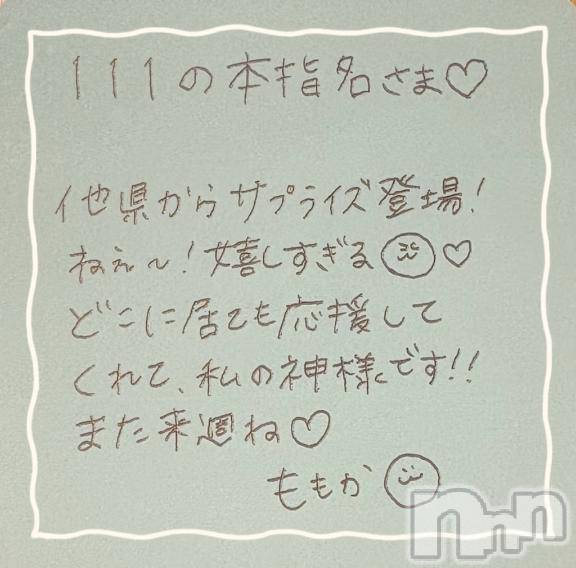 111の本指名さま♡
他県からサプライズ登場!
ねぇ〜!嬉しすぎる♡
どこに居ても応援して
くれて、私の神様です!!
また来週ね♡
ももか
nnn